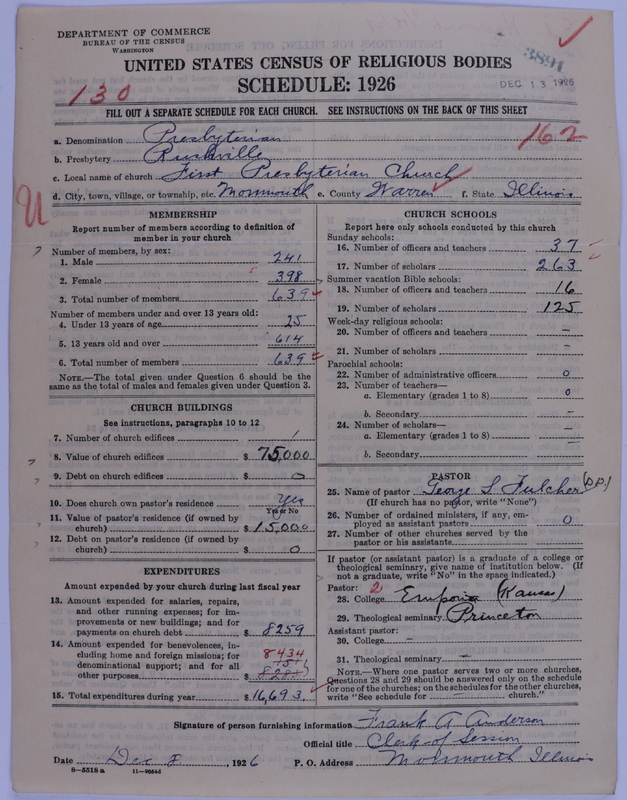 DEPARTMENT OF COMMERCE
BUREAU OF THE CENSUS
WASHINGTON
3891
DEC 13 1926
UNITED STATES CENSUS OF RELIGIOUS BODIES
SCHEDULE: 1926
130
FILL OUT A SEPARATE SCHEDULE FOR EACH CHURCH. SEE INSTRUCTIONS ON THE BACK OF THIS SHEET
162
a. Denomination Presbyterian
b. Presbytery Rushville
c. Local name of church First Presbyterian Church
d. City, town, village, or township, etc. Monmouth e. County Warren f. State Illinois
U
MEMBERSHIP
Report number of members according to definition of member in your church
Number of members, by sex:
1. Male 241
2. Female 398
3. Total number of members 639
Number of members under and over 13 years old:
4. Under 13 years of age 25
5. 13 years old and over 614
6. Total number of members 639
NOTE.—The total given under Question 6 should be the
same as the total of males and females given under Question 3.
CHURCH BUILDINGS
See instructions, paragraphs 10 to 12
7. Number of church edifices 1
8. Value of church edifices $ 75,000
9. Debt on church edifices $ 0
10. Does church own pastor's residence yes
Yes or No
11. Value of pastor's residence (if owned by
church) $ 15,000
12. Debt on pastor's residence (if owned by
church) $ 0
EXPENDITURES
Amount expended by your church during last fiscal year
13. Amount expended for salaries, repairs,
and other running expenses; for im-
provements or new buildings; and for
payments on church debt $ 8259
14. Amount expended for benevolences, in-
cluding home and foreign missions; for 8434
denominational support; and for all
other purposes $
15. Total expenditures during year $ 16,693
CHURCH SCHOOLS
Report here only schools conducted by this church
Sunday schools:
16. Number of officers and teachers 37
17. Number of scholars 263
Summer vacation Bible schools:
18. Number of officers and teachers 16
19. Number of scholars 125
Week-day religious schools:
20. Number of officers and teachers —
21. Number of scholars —
Parochial schools:
22. Number of administrative officers 0
23. Number of teachers—
a. Elementary (grades 1 to 8) 0
b. Secondary —
24. Number of scholars—
a. Elementary (grades 1 to 8) —
b. Secondary —
PASTOR
25. Name of pastor George L Fulcher (D.D.)
(If church has no pastor, write "None")
26. Number of ordained ministers, if any, em-
ployed as assistant pastors 0
27. Number of other churches served by the
pastor or his assistants
If pastor (or assistant pastor) is a graduate of a college or
theological seminary, give name of institution below. (If
not a graduate, write "No" in the space indicated.)
Pastor: 2
28. College Emporia (Kansas)
29. Theological seminary Princeton
Assistant pastor:
30. College —
31. Theological seminary —
NOTE.—Where one pastor serves two or more churches,
Questions 28 and 29 should be answered only on the schedule
for one of the churches; on the schedules for the other churches,
write "See schedule for — church."
Signature of person furnishing information Frank A Anderson
Official title Clerk of Session
Date Dec 8, 1926 P. O. Address Monmouth Illinois
8—5518 a 11—9054d